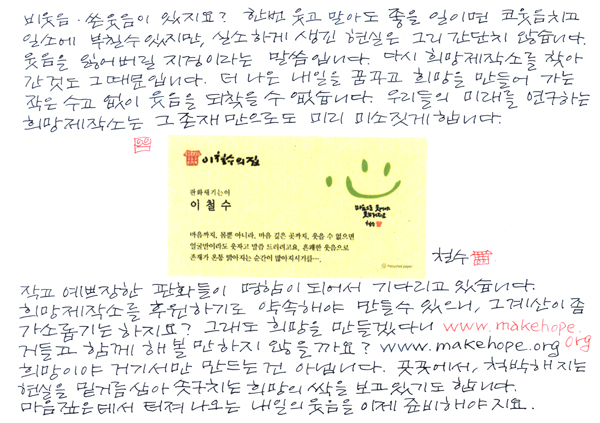 비웃음·쓴웃음이 있지요? 한번 웃고 말아도 좋을 일이면 코웃음치고
일소에 부칠수 있지만, 실소하게 생긴 현실은 그리 간단치 않습니다.
웃음을 잃어버릴 지경이라는 말씀입니다. 다시 희망제작소를 찾아
간것도 그때문입니다. 더 나은 내일을 꿈꾸고 희망을 만들어 가는
작은 수고 없이 웃음을 되찾을 수 없습니다. 우리들의 미래를 연구하는
희망제작소는 그 존재만으로도 미리 미소짓게합니다.
이철수의 집
판화새기는이
이 철 수
마음까지, 몸뿐 아니라, 마음 깊은 곳까지, 웃을 수 없으면
얼굴만이라도 웃자고 말씀 드리려고요, 흔쾌한 웃음으로
존재가 온통 맑아지는 순간이 많아지시기를…
철수
작고 예쁘장한 판화들이 명함이 되어서 기다리고 있습니다.
희망제작소를 후원하기로 약속해야 만들수 있으니, 그계산이 좀
가소롭기는 하지요? 그래도 희망을 만들겠다니 www.makehope.org
거들고 함께 해볼 만하지 않을까요? www.makehope.org
희망이야 거기서만 만드는 건 아닙니다. 곳곳에서, 척박해지는
현실을 밑거름삼아 솟구치는 희망의 싹을 보고있기도 합니다.
마음깊은데서 터져 나오는 내일의 웃음을 이제 준비해야지요.